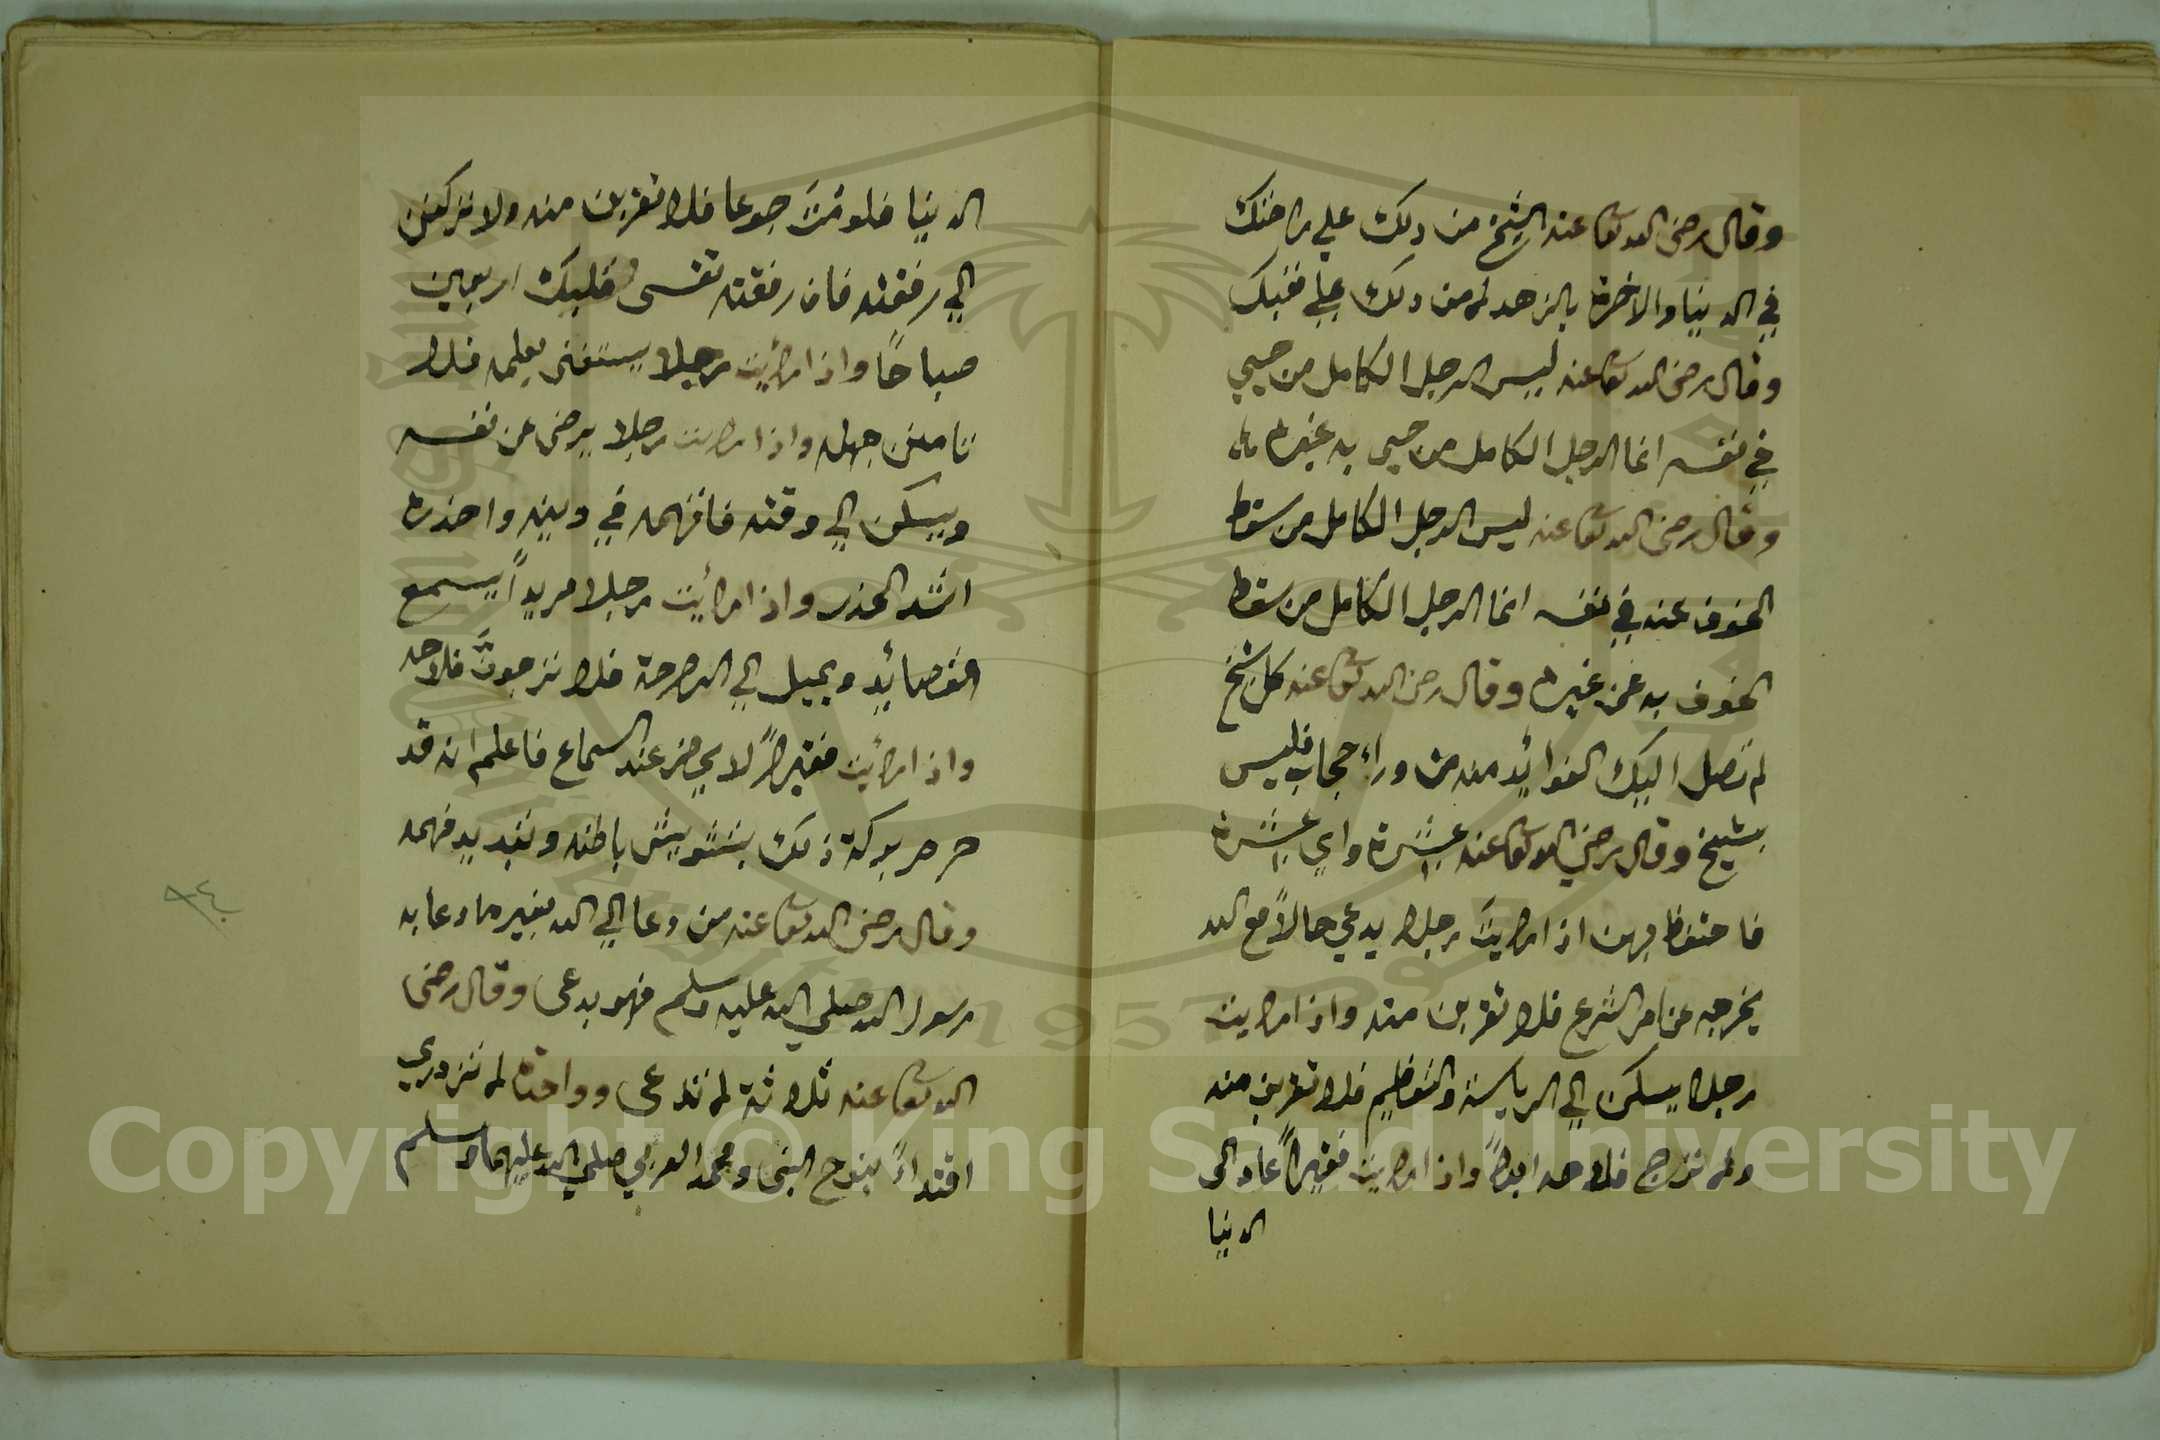 وقال رضى الله تعالى عنه الشيخ من دلك علي راحتك
في الدنيا والاخرة بالزهد لا من دلك علي فقبك
وقال رضى الله تعالى عنه ليس الرجل الكامل من حيي
في نفسه انما الرجل الكامل من حيي به غيره
وقال رضى الله تعالى عنه ليس الرجل الكامل من سقط
الخوف عنه في نفسه انما الرجل الكامل من سقط
الخوف به عن غيره وقال رضى الله تعالى عنه كل شيخ
لم تصل اليك الفوائد منه من وراء حجاب فليس
بشيخ وقال رضي الله تعالى عنه عشرة واي عشرة
فاحتفظ بهن اذا رايت رجلا يدعي حالاً مع الله
يخرجه عن امر الشرع فلا تقربن منه واذا رايت
رجلا يسكن الي الرياسة والتعظيم فلا تقربن منه
ولا ترج فلاحه ابداً واذا رايت فقيراً عاد الى
الدنيا
الدنيا فلو مُتَّ جوعا فلا تقربن منه ولا تركنن
الي رفقته فان رفقته تقسى قلبك اربعين
صباحًا واذا رأيت رجلا يستغنى بعلمه فلا
تامنن جهله واذا رايت رجلا يرضى عن نفسه
ويسكن الي وقته فاتهمه في دينه واحذره
اشد الحذر واذا رأيت رجلا مريداً يسمع
القصائد ويميل الي الراحة فلا ترجونَّ فلاحه
واذا رأيت فقيراً لا يحضر عند السماع فاعلم انه قد
حرم بركة ذلك بتشويش باطنه وتبديد فهمه
وقال رضى الله تعالى عنه من دعا الي الله بغير ما دعا به
رسول الله صلي الله عليه وسلم فهو بدعى وقال رضى
الله تعالى عنه ثلاثة لا تدعى وواحدة لا تزدري
اقتداءً بنوح النبى ومحمد العربي صلي الله عليهما وسلم
Copyright © King Saud University
1957